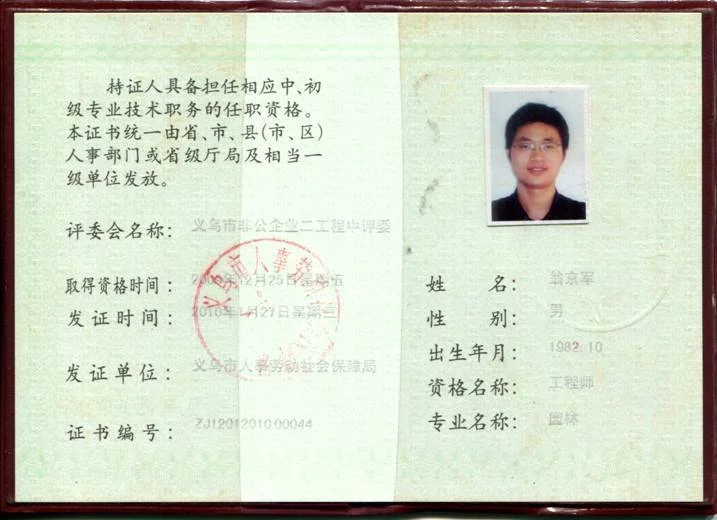 持证人具备担任相应中、初
级专业技术职务的任职资格。
本证书统一由省、市、县(市、区)
人事部门或省级厅局及相当一
级单位发放。
评委会名称：
义乌市非公企业二工程中评委
取得资格时间：
12月25日星期五
发证时间：
2010年1月27日星期三
发证单位：
义乌市人事劳动社会保障局
证书编号：
ZJ1201201000044
义乌市人事劳
姓名：
翁京军
性别：
男
出生年月：
1982.10
资格名称：
工程师
专业名称：
园林